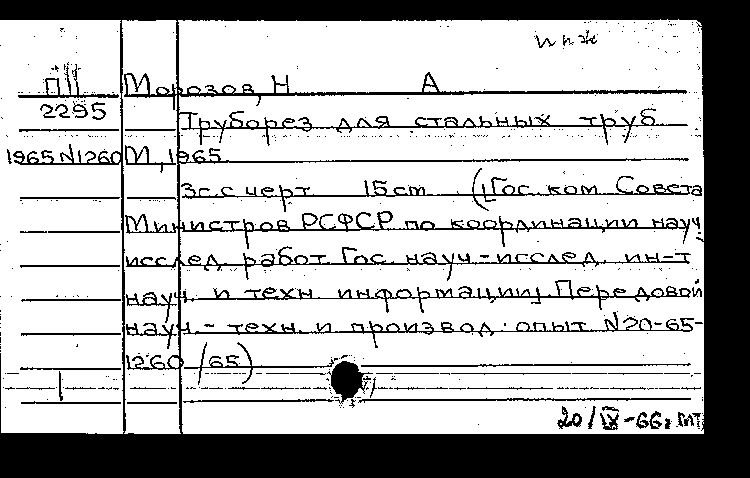 инж
П11 Морозов, Н А
2295 Труборез для стальных труб
1965 N1260 М, 1965
3с. с черт 15cm ([Гос. ком. Совета
Министров РСФСР по координации науч.
исслед. работ Гос. науч.-исслед. ин-т
науч. и техн. информации]. Передовой
науч. - техн. и производ. опыт N20-65-
1260/65)
1
20/IX-66г. МТ